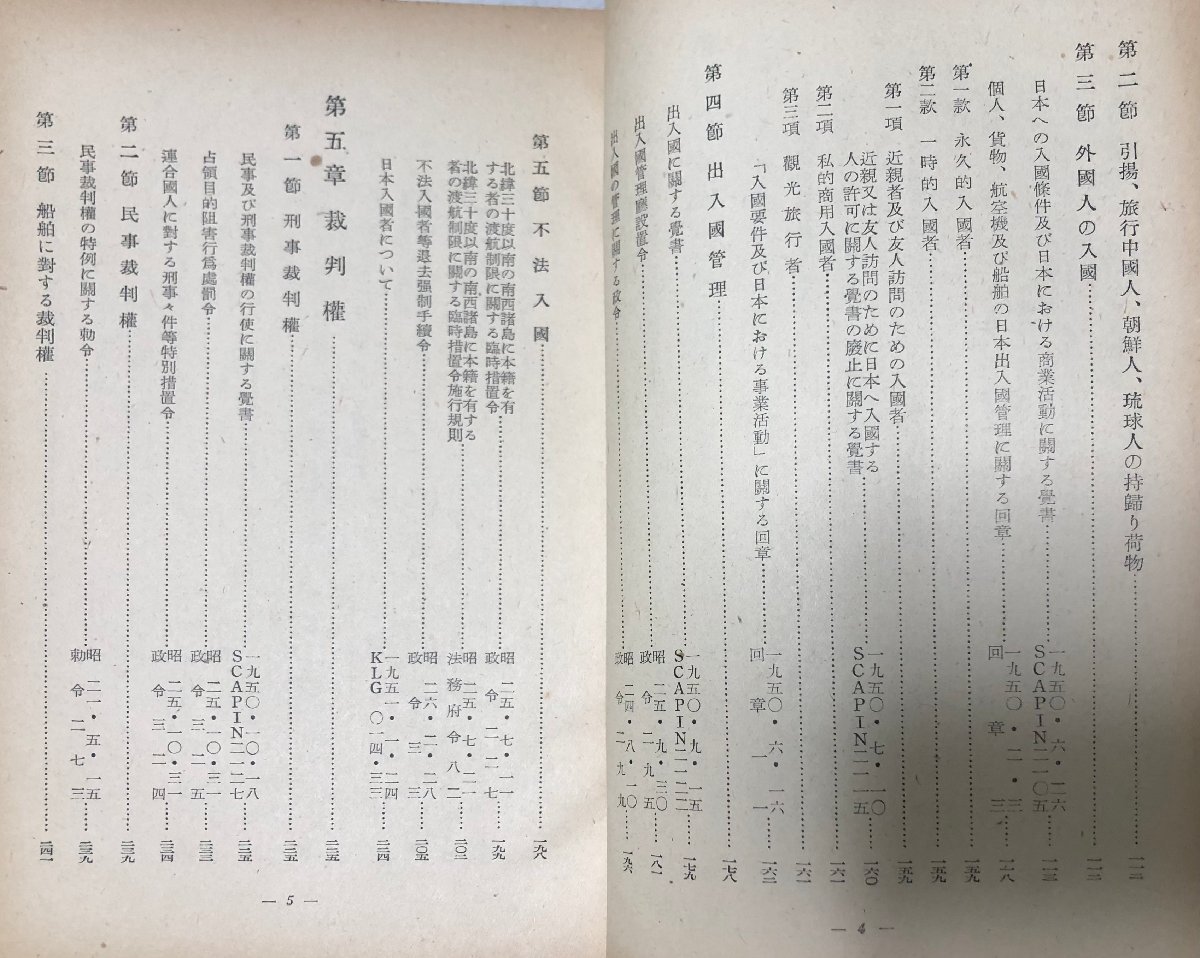 第二節　引揚、旅行中國人、朝鮮人、琉球人の持歸り荷物……一一二
第三節　外國人の入國……一一二
日本への入國條件及び日本における商業活動に關する覺書……一九五〇・六・二六 SCAPIN二一〇五 一一三
個人、貨物、航空機及び船舶の日本出入國管理に關する回章……一九五〇・二・三 回章三 一一八
第一款　永久的入國者……一五九
第二款　一時的入國者……一五九
第一項　近親者及び友人訪問のための入國者……一五九
近親又は友人訪問のために日本へ入國する
人の許可に關する覺書の廢止に關する覺書……一九五〇・七・一〇 SCAPIN二一一五 一六〇
第二項　私的商用入國者……一六一
第三項　觀光旅行者……一六一
「入國要件及び日本における事業活動」に關する回章……一九五〇・六・一六 回章一一 一六二
第四節　出入國管理……一七八
出入國に關する覺書……一九五〇・九・一五 SCAPIN二一二二 一七九
出入國管理廳設置令……昭二五・九・三〇 政令二九五 一八一
出入國の管理に關する政令……昭二四・八・一〇 政令二九九 一九六
— 4 —
第五節　不法入國……一九八
北緯三十度以南の南西諸島に本籍を有
する者の渡航制限に關する臨時措置令……昭二五・七・一一 政令二二七 一九九
北緯三十度以南の南西諸島に本籍を有する
者の渡航制限に關する臨時措置令施行規則……昭二五・七・二一 法務府令八二 二〇二
不法入國者等退去强制手續令……昭二六・二・二八 政令三三 二〇五
日本入國者について……一九五一・一・二四 KLG〇一四・三三 二二四
第五章　裁判權……二二五
第一節　刑事裁判權……二二五
民事及び刑事裁判權の行使に關する覺書……一九五〇・一〇・一八 SCAPIN二一二七 二二五
占領目的阻害行爲處罰令……昭二五・一〇・三一 政令三二五 二三三
連合國人に對する刑事々件等特別措置令……昭二五・一〇・三一 政令三二四 二三四
第二節　民事裁判權……二三九
民事裁判權の特例に關する勅令……昭二一・五・一五 勅令二七三 二三九
第三節　船舶に對する裁判權……二四一
— 5 —